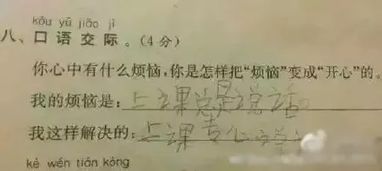 kǒu yǔ jiāo jì
八、口语交际。(4分)
你心中有什么烦恼,你是怎样把“烦恼”变成“开心”的。
我的烦恼是:上课总是说话。
我这样解决的:上课专心
kè wén tián kòng